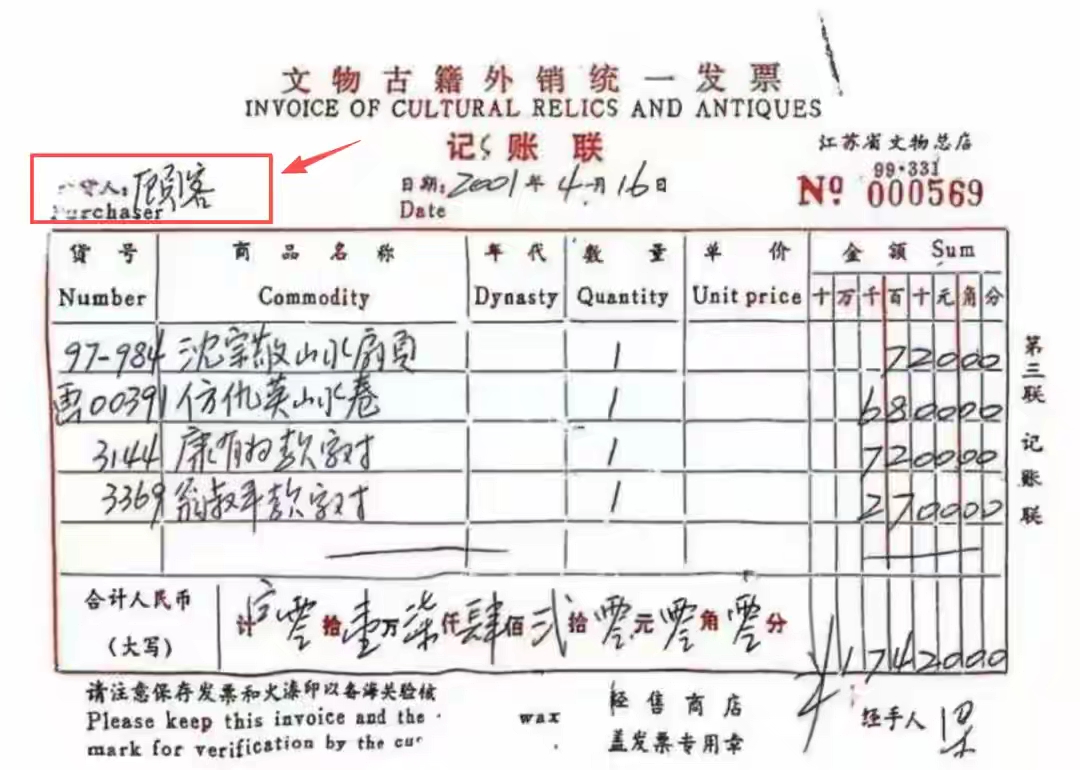 文物古籍外销统一发票
INVOICE OF CULTURAL RELICS AND ANTIQUES
记账联
江苏省文物总店
99·331
№ 000569
货人:顾客
Purchaser
日期:2001年4月16日
Date
货号 商品名称 年代 数量 单价 金额 Sum
Number Commodity Dynasty Quantity Unit price 十万千百十元角分
97-984 沈宗敬山水扇页 1 72000
画00391 仿仇英山水卷 1 680000
3144 康有为款字对 1 720000
3369 翁叔平款字对 1 270000
合计人民币
(大写)
计 零拾壹万柒仟肆佰贰拾零元零角零分 ¥1742000
第三联 记账联
请注意保存发票和火漆印以备海关验核
Please keep this invoice and the wax
mark for verification by the
经售商店
盖发票专用章
经手人 梁